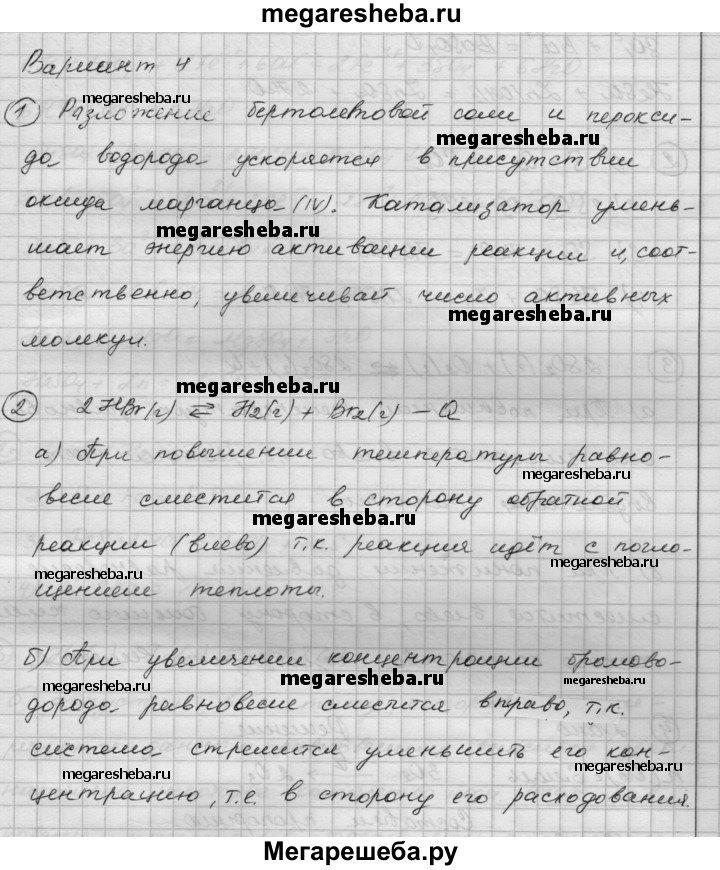 megaresheba.ru
Вариант 4
megaresheba.ru
① Разложение бертолетовой соли и перокси-
megaresheba.ru
да водорода ускоряется в присутствии
оксида марганца (IV). Катализатор умень-
megaresheba.ru
шает энергию активации реакции и, соот-
ветственно, увеличивает число активных
megaresheba.ru
молекул.
megaresheba.ru
② 2HBr(г) ⇄ H2(г) + Br2(г) – Q
а) При повышении температуры равно-
megaresheba.ru
весие сместится в сторону обратной
megaresheba.ru
реакции (влево) т.к. реакция идёт с погло-
megaresheba.ru
щением теплоты.
б) При увеличении концентрации бромово-
megaresheba.ru
megaresheba.ru
дорода равновесие сместится вправо, т.к.
система стремится уменьшить его кон-
megaresheba.ru
megaresheba.ru
центрацию, т.е. в сторону его расходования.
Мегарешеба.ру